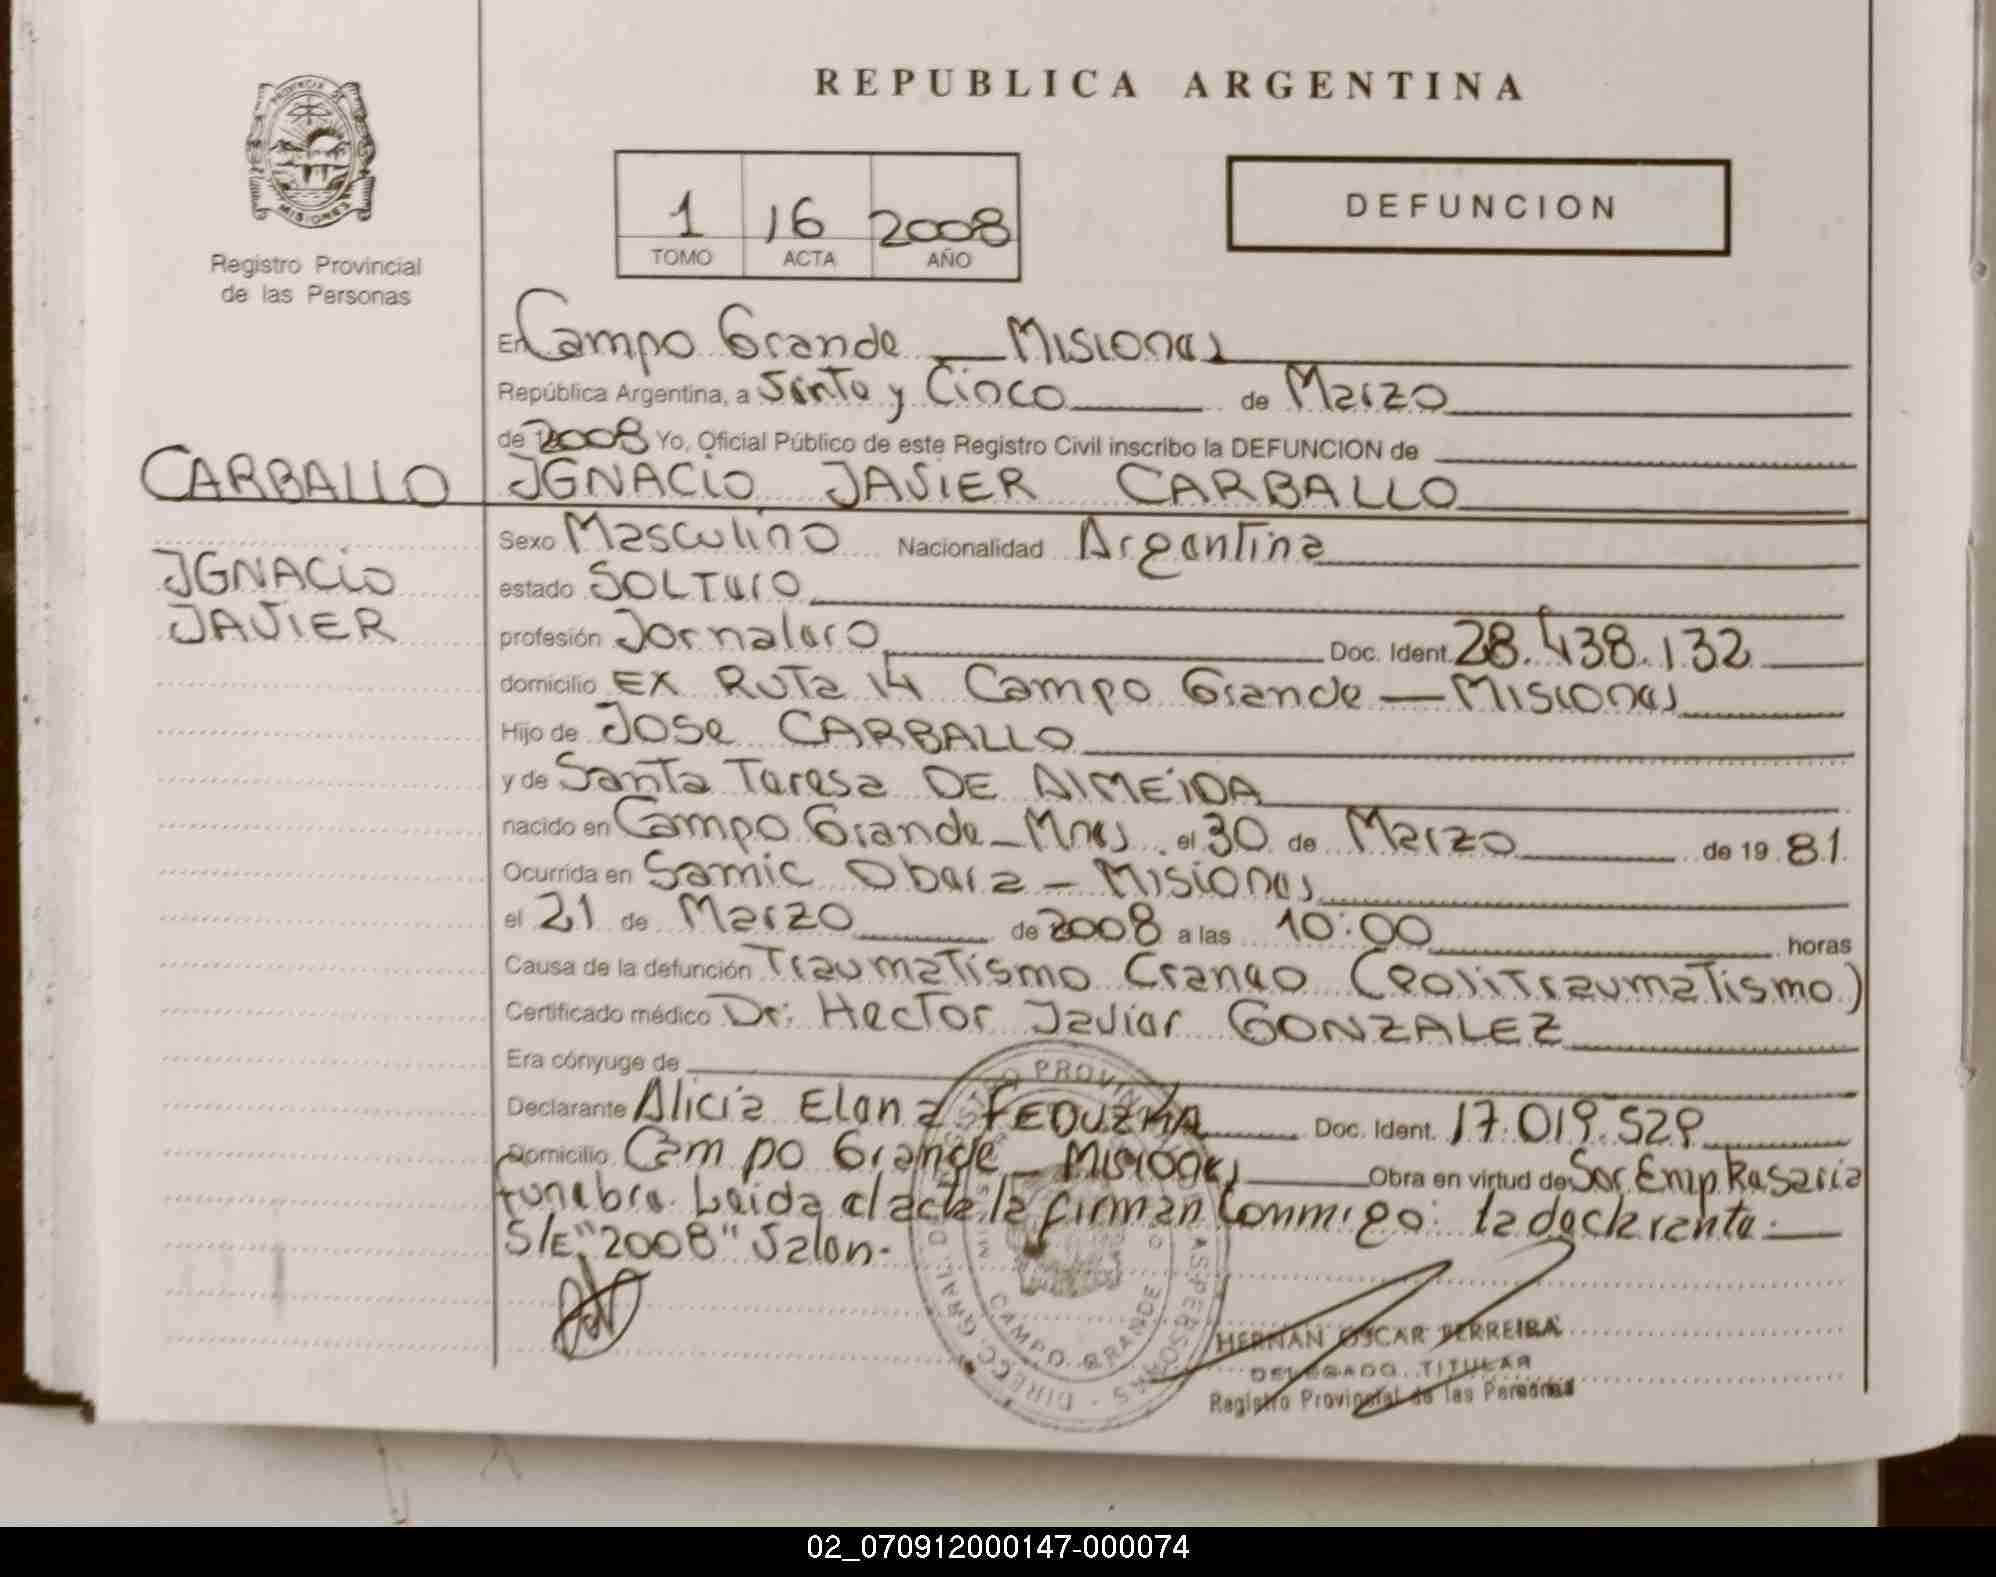 REPUBLICA ARGENTINA
PROVINCIA DE
MISIONES
Registro Provincial
de las Personas
1 16 2008
TOMO ACTA AÑO
DEFUNCION
En Campo Grande — Misiones
República Argentina, a Veinte y Cinco de Marzo
de 2008 Yo, Oficial Público de este Registro Civil inscribo la DEFUNCION de
CARBALLO IGNACIO JAVIER CARBALLO
Sexo Masculino Nacionalidad Argentina
IGNACIO
JAVIER
estado SOLTERO
profesión Jornalero Doc. Ident. 28.438.132
domicilio EX RUTA 14 Campo Grande — Misiones
Hijo de Jose CARBALLO
y de Santa Teresa DE ALMEIDA
nacido en Campo Grande - Mnes el 30 de Marzo de 19 81.
Ocurrida en Samic Obera - Misiones
el 21 de Marzo de 2008 a las 10:00 horas
Causa de la defunción Traumatismo Craneo (politraumatismo)
Certificado médico Dr: Hector Javier GONZALEZ
Era cónyuge de
Declarante Alicia Elena Doc. Ident. 17.019.529
Domicilio Campo Grande - Misiones Obra en virtud de Ser Emp Resaria
funebre. Leida el acta la firman Conmigo: la declarante.
S/E "2008" Valen.
CAMPO GRANDE
HERNAN OSCAR FERREIRA
DELEGADO TITULAR
Registro Provincial de las Personas
02_070912000147-000074